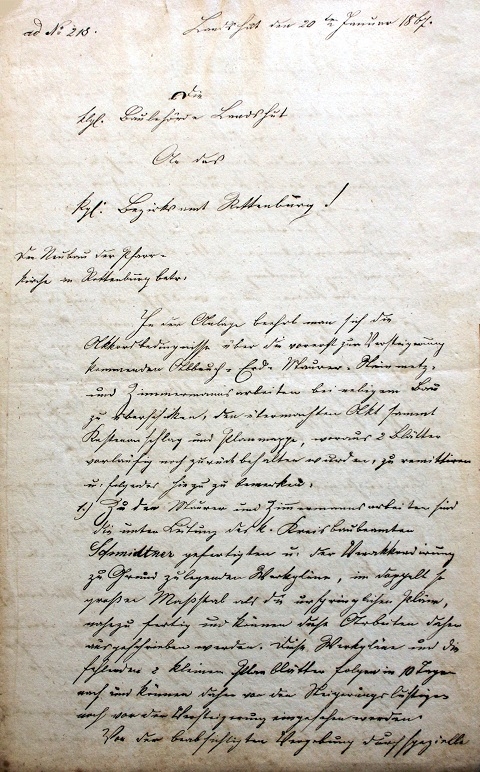 ad No 218.
Landshut den 20ten Januar 1867.
Die
kgl. Baubehörde Landshut
An das
kgl. Bezirksamt Rottenburg!
Den Neubau der Pfarr-
kirche in Rottenburg betr.
In der Anlage beehrt man sich die
Akkordbedingnisse über die vorerst zur Versteigerung
kommenden Abbruch- Erd- Maurer- Steinmetz-
und Zimmermannsarbeiten bei obigem Bau
zu überschicken, den übermachten Akt sammt
Kostenanschlag und Planmappe, woraus 2 Blätter
vorläufig noch zurückbehalten wurden, zu remittiren
u. folgendes hiezu zu bemerken:
1.) Zu den Maurer und Zimmermannsarbeiten sind
die unter Leitung des k. Kreisbaubeamten
Schmidtner gefertigten u. der Verakkordirung
zu Grund zu legenden Werkpläne, in doppelt so
großem Maßstab als die ursprünglichen Pläne,
nahezu fertig und können diese Arbeiten daher
ausgeschrieben werden. Diese Werkpläne und die
fehlenden 2 kleinen Planblätter folgen in 10 Tagen
nach und können daher von den Steigerungslustigen
noch vor der Versteigerung eingesehen werden.
Vor der beabsichtigten Vergebung durch spezielle